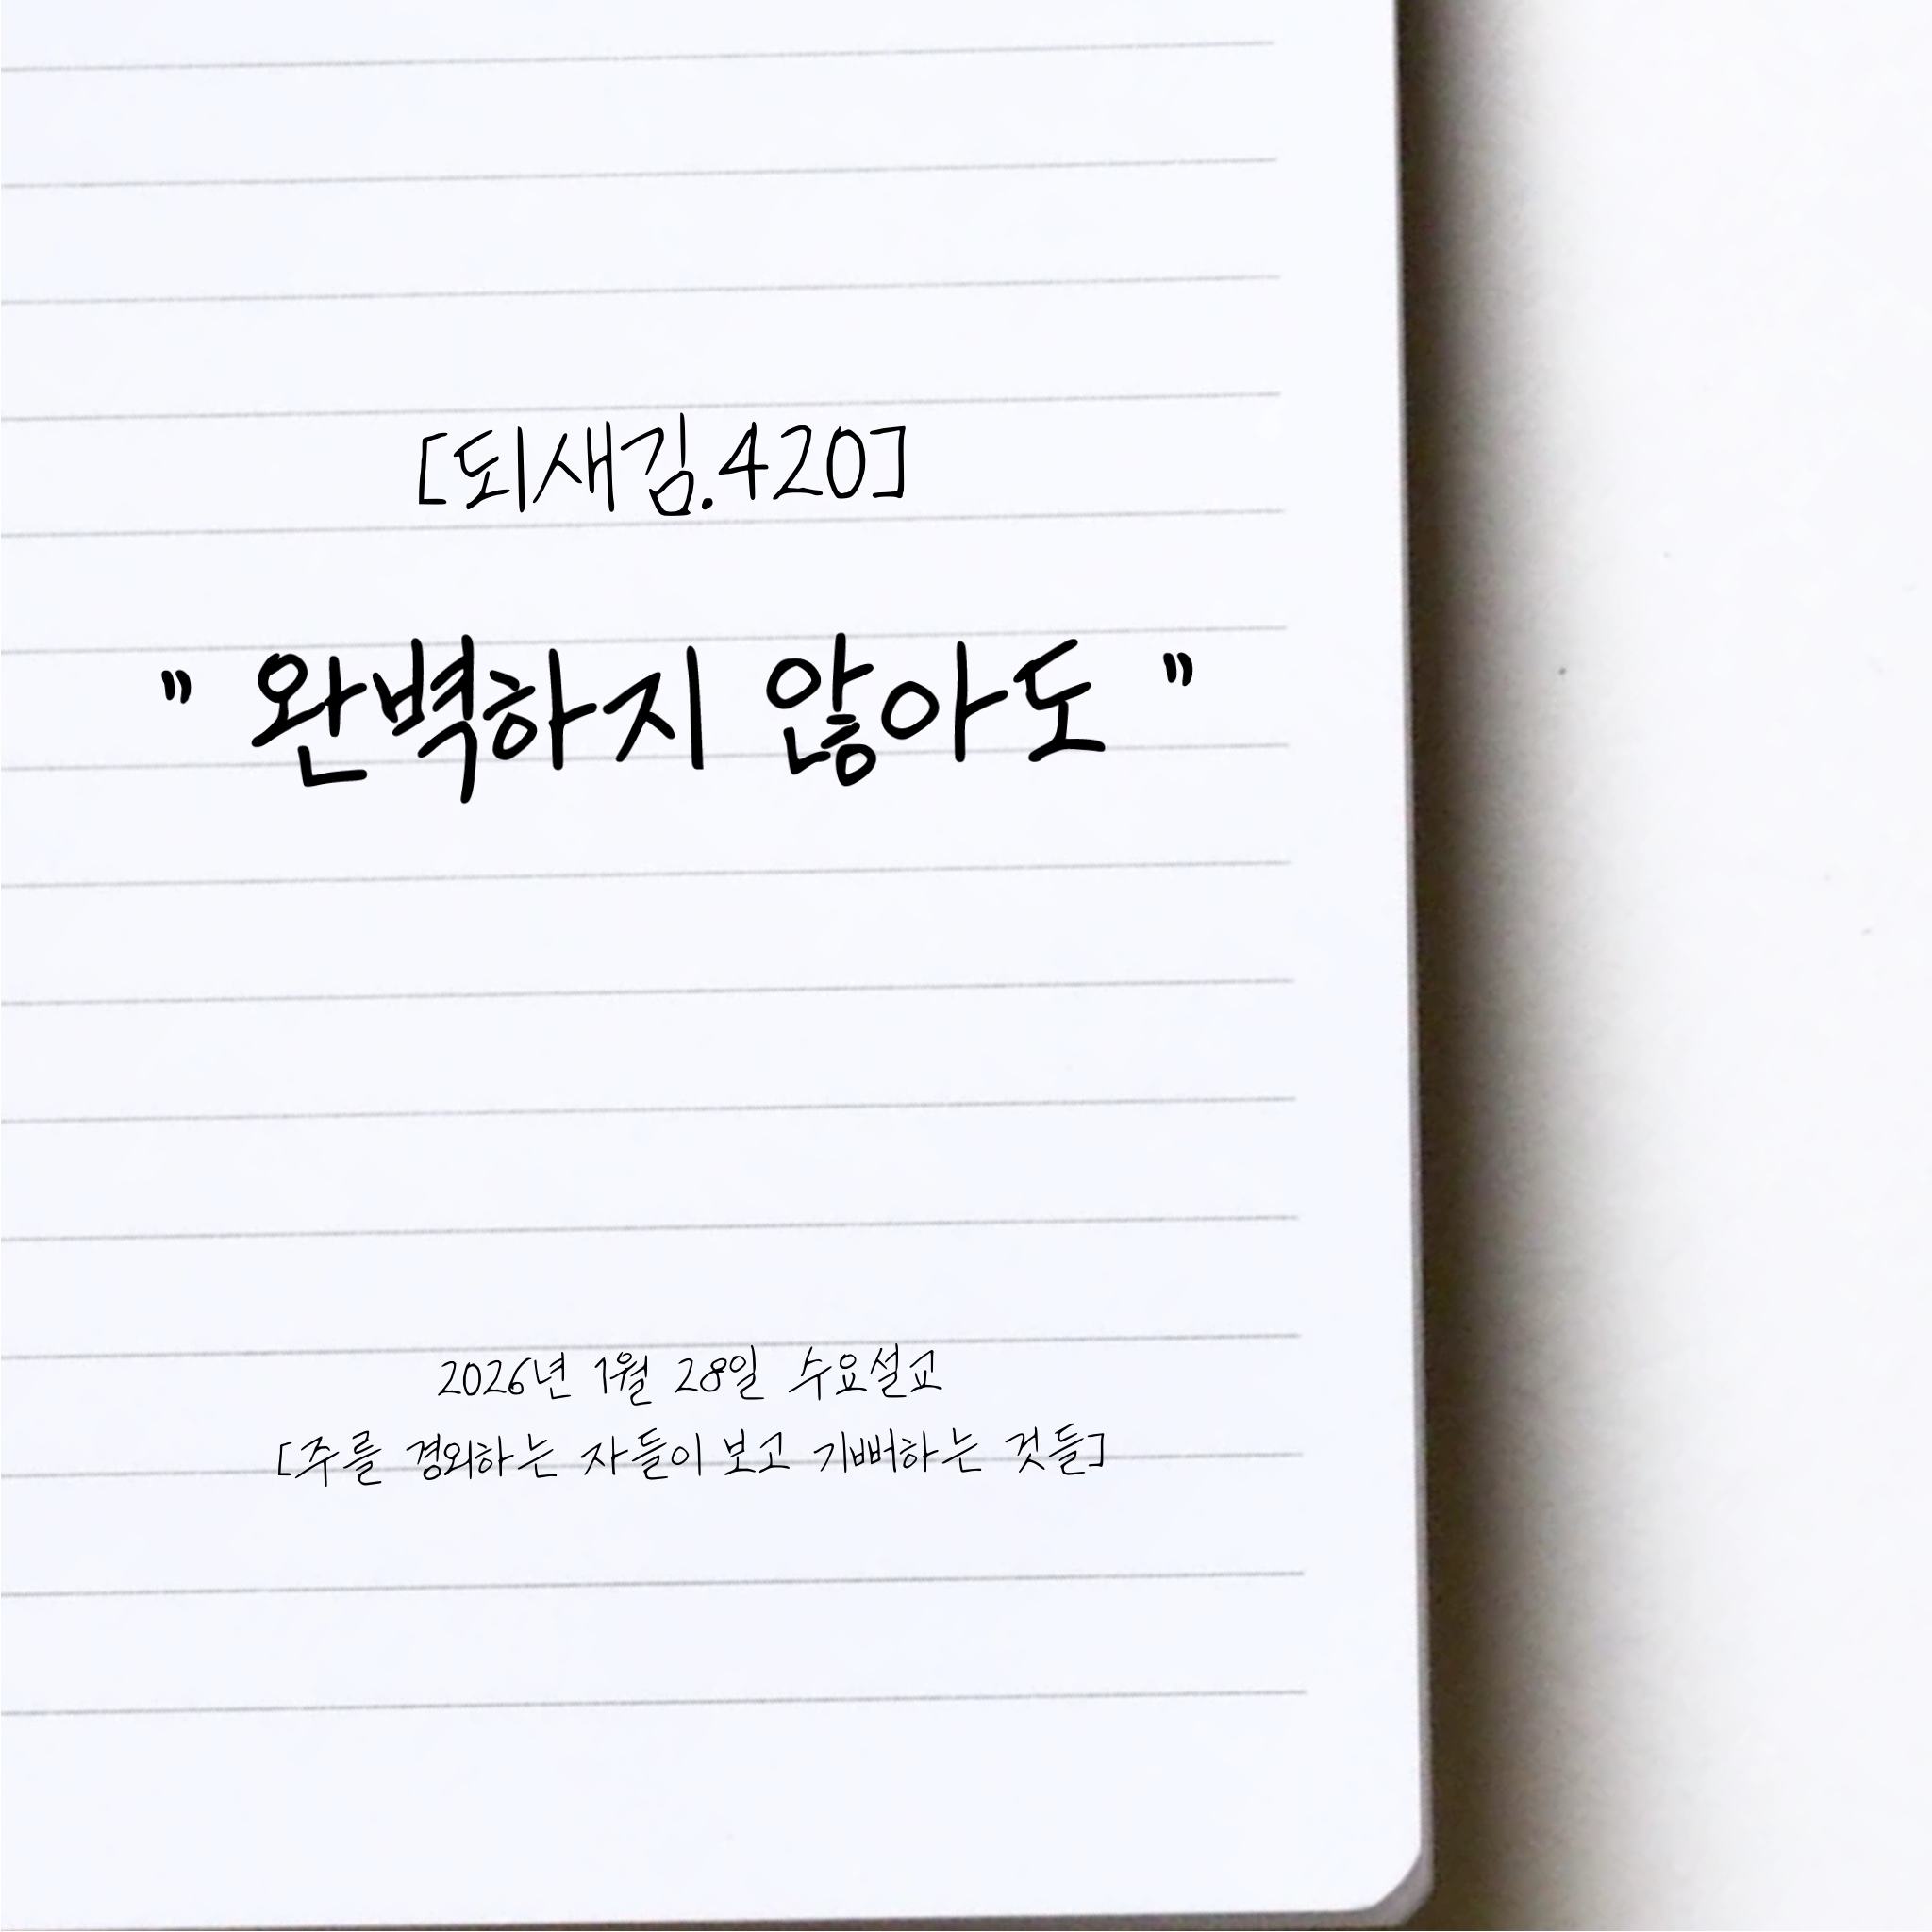 [되새김.420]
" 완벽하지 않아도 "
2026년 1월 28일 수요설교
[주를 경외하는 자들이 보고 기뻐하는 것들]